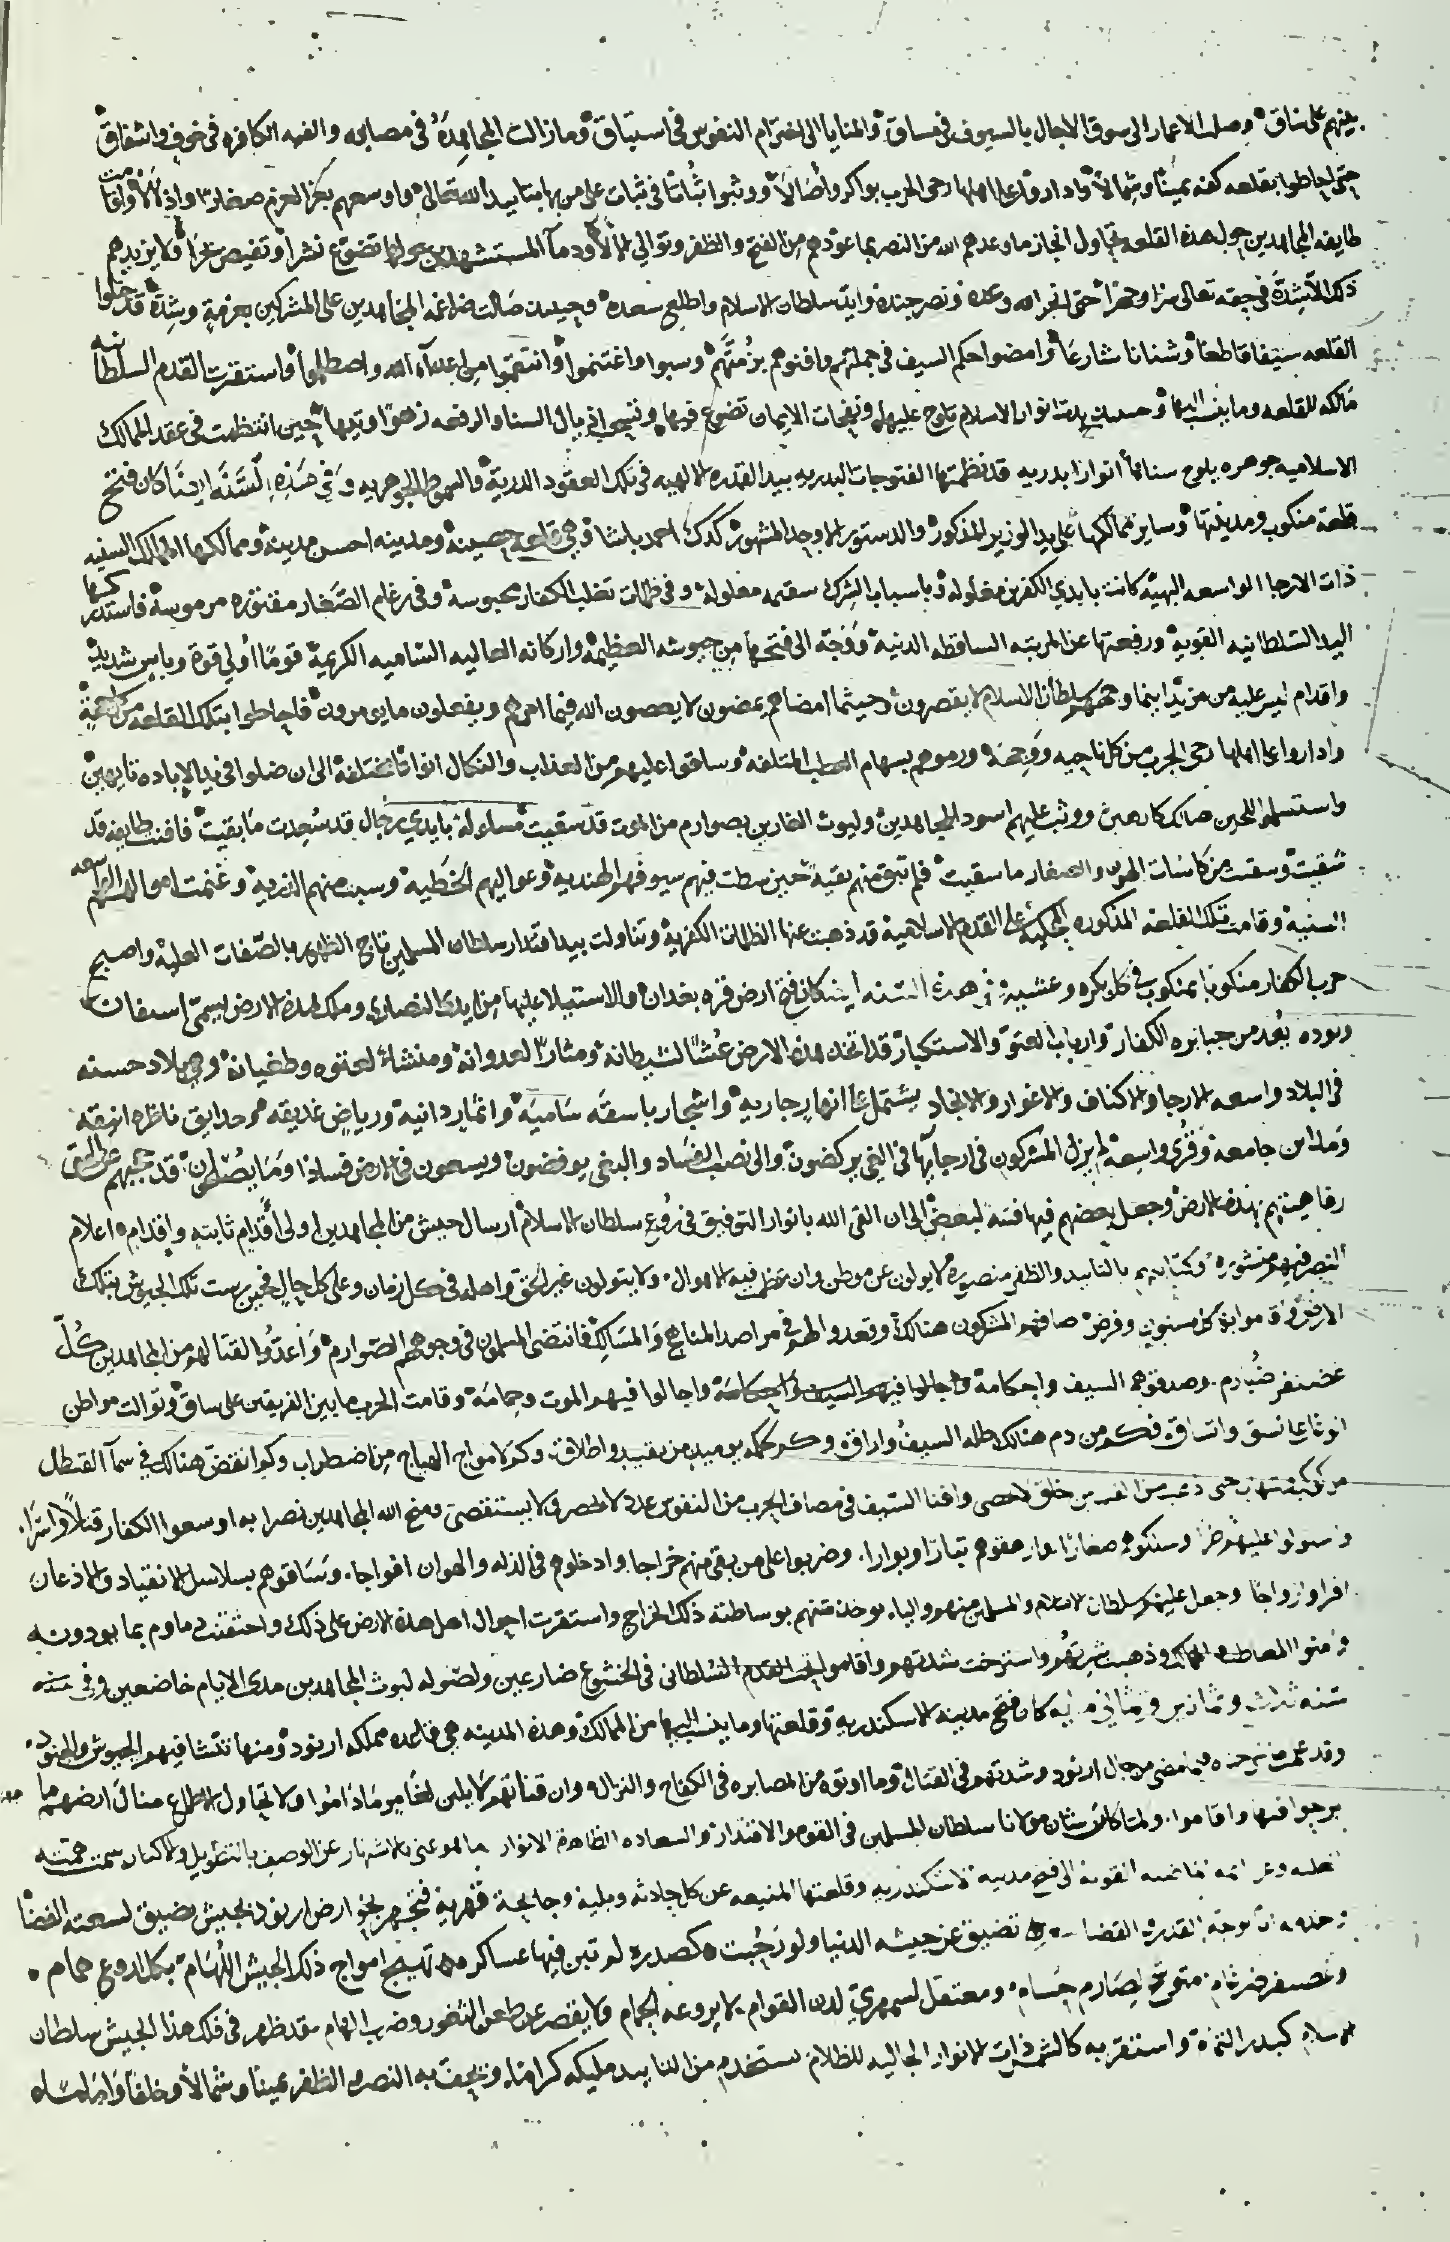 بينهم على ساق وصلت الاعمار الى سوق الاجال بالسيوف في مساق والمنايا الى اخترام النفوس في استباق وما زالت المجاهدة في مصابره والفيه الكافره في خوف واشفاق
حتى احاطوا بقلعه كفه يمينا وشمالا واداروا على اهلها رحى الحرب بواكر واصالا ووثبوا ثباتا في ثبات على من بها بتاييد الله تعالى واوسعهم بعز العزم صغارا واذلالا
طايفه المجاهدين حول هذه القلعه تحاول انجاز ما وعدهم الله من النصر بما عودهم من الفتح والظفر وتوالى ودما المستشهدين حولها تضوع نشرا وتفيض ولا يزيدهم
ذلك الا شدة في حقه تعالى حتى انجز الله وعده ونصر جنده وايد سلطان الاسلام واطلع سعده وحينئذ صالت ضراغمه المجاهدين على المشركين بعزمة وشدة قد دخلوا
القلعه سيفا قاطعا وسنانا شارعا وامضوا حكم السيف في جملتهم وافنوهم برمتهم وسبوا واغتنموا وانتقموا من اعداء الله واصطلموا واستقرت القدم السلطانيه
مالكه للقلعه وما ينسب اليها وحينئذ بدت انوار الاسلام تلوح عليها ونفحات الايمان تضوع فيها اذيال السنا والرفعه زهوا وتيها حين انتظمت في عقد الممالك
الاسلاميه جوهره يلوح سناها انوارا بدريه قد نظمتها الفتوحات البدريه بيد القدره الالهيه في تلك العقود الدرية والسموط الجوهريه وفي هذه السنة ايضا كان فتح
قلعة منكوب ومدينتها وساير ممالكها على يد الوزير المذكور والدستور الاوحد المشهور كدك احمد باشا وهي قلعة حصينة ومدينه احسن مدينه وممالكها الممالك السنيه
ذات الارجا الواسعه البهيه كانت بايدي الكفره مغلولة وباسباب الشرك سقيمه معلولة وفي ظلمات تغلب الكفار محبوسه وفي رغام الصغار مرموسة فاستدركها
اليد السلطانيه القويه ورفعتها عن المرتبه الساقطه الدنيه ووجه الى فتحها من جيوشه العظيمه واركانه العاليه الساميه الكريمة قوما اولي قوة وباس شديد
واقدام ليس عليه من مزيد اينما وجههم سلطان الاسلام لا يقصرون وحيثما امضاهم يمضون لا يعصون الله فيما امرهم ويفعلون ما يومرون فاحاطوا بتلك القلعه
واداروا على اهلها رحى الحرب من كل ناحيه ووجهه ورموهم بسهام العطب المتلفه وساقوا عليهم من العذاب والنكال انواعا مختلفه الى ان ضلوا في بيد الاباده تايهين
واستسلموا للحين هنالك كارهين ووثب عليهم اسود المجاهدين وليوث الغازين بصوارم من الموت قد سقيت مسلولة بايدي رجال قد سعدت ما بقيت فافنت طايفه قد
شقيت وسقت من كاسات الهون والصغار ما سقيت فلم تبق منهم بقية حين سطت فيهم سيوفهم الهنديه وعواليهم الخطيه وسبت منهم الذريه وغنمت اموالهم
السنيه وقامت تلك القلعه المذكوره المحكية على القدم الاسلامية قد ذهبت عنها الظلمات الكفريه وتناولت بيد اقتدار سلطان المسلمين تاج الظهور بالصفات العلية واصبح
حزب الكفار منكوبا بمنكوب في كل بكره وعشيه في هذه السنه ايضا كان فتح ارض قره بغدان والاستيلا عليها من ايدي النصارى وملك هذه الارض يسمى اسفان
وبوده يعد من جبابره الكفار وارباب العتو والاستكبار قد اتخذ هذه الارض عشا لشيطانه ومثارا لعدوانه ومنشاء لعتوه وطغيانه وهي بلاد حسنه
في البلاد واسعه الارجا والاكناف والاغوار والانجاد يشتمل على انهار جاريه واشجار باسقه ساميه واثمار دانيه ورياض غديقه وحدايق ناظره انيقه
ومداين جامعه وقرى واسعه لم يزل المشركون في ارجايها في الغي يركضون والى نصب الفساد والبغي يوفضون ويسعون في الارض فسادا وما يصلحون قد
رفاهيتهم بهذه الارض وجعل بعضهم فيها فتنة لبعض الى ان القى الله بانوار التوفيق في روع سلطان الاسلام ارسال جيش من المجاهدين اولى اقدام ثابته واقدام اعلام
النصر فيهم منشوره وكتايبهم بالتاييد والظفر منصوره لا يولون عن موطن وان عظمت فيه الاهوال ولا يتولون غير الحق واهله في كل زمان وعلى كل حال فحين برزت تلك الجيوش بتلك
الارض واقاموا بها كل مسنون وفرض صافهم المشركون هنالك وقعدوا لهم في مراصد المناهج والمسالك فانتضى المسلمون في وجوههم الصوارم واعدوا لقتالهم من المجاهدين كل
غضنفر ضبارم وصدقوهم السيف واحكامه واجالوا فيهم الموت وحمامه وقامت الحرب ما بين الفريقين على ساق وتوالت مواطن
انواعها على نسق واتساق فكم من دم هنالك طله السيف واراقه وكم يوميذ من تقييد واطلاق وكم لامواج الهياج من اضطراب وكم انقض هنالك في سما القسطل
من خلق لا يحصى وافنا السيف في مصاف الحرب من النفوس عددا لا يحصر ولا يستقصى ومنح الله المجاهدين نصرا به اوسعوا الكفار قتلا واسرا
واستولوا عليهم وسلكوهم صغارا وارهقوهم تبارا وبوارا وضربوا على من بقي منهم خراجا وادخلوهم في الذله والهوان افواجا وساقوهم بسلاسل الانقياد والاذعان
افرادا وازواجا وجعل عليهم سلطان الاسلام والمسلمين منهم واليا يوخذ منهم بوساطته ذلك الخراج واستقرت احوال اهل هذه الارض على ذلك واحتقنت دماوهم بما يودونه
وامنوا المعاطب والمهالك وذهبت شرتهم واسترخت شدتهم واقاموا تحت القدم السلطاني في الخشوع ضارعين ولصوله ليوث المجاهدين مدى الايام خاضعين وفي
سنه ثلاث وثمانين وثماني مايه كان فتح مدينه الاسكندريه وقلعتها وما ينسب اليها من الممالك وهذه المدينه هي قاعده مملكه ارنود ومنها تنتشا فيهم الجيوش والجنود
وقد فيما مضى من حال ارنود وشدتهم في القتال وما اوتوه من المصابره في الكفاح والنزال وان قناتهم لا يلين لغامز ما داموا ولا تحاول الاطماع منال ارضهم ما
برحوا فيها واقاموا ولما كان شان مولانا سلطان المسلمين في القوه والاقتدار والسعاده الظاهرة الانوار ما هو غني بالاشتهار عن الوصف بالتطويل والاكثار سمت همته
العليه وعزايمه القويه الى فتح مدينه الاسكندريه وقلعتها المنيعه عن كل حادثه وملمه وجايحة قهرية فتجهز نحو ارض ارنود بجيش يضيق لسعته الفضا
القدر والقضا تضيق عن جيشه الدنيا ولو رحبت كصدره لم تبن فيها عساكره تهيج امواج ذلك الجيش اللهام بكل اروع همام
وغضنفر ضرغام متوشح بصارم حسام ومعتقل لسمهري لدن القوام لا يروعه الحمام ولا يقصر عن طعن النحور وضرب الهام قد ظهر في فلك هذا الجيش سلطان
الاسلام كبدر التمام واستقر به كالشمس ذات الانوار الجاليه للظلام يستخدم من التاييد مليكه كراما وتحف به النصره والظفر يمينا وشمالا وخلفا واماما